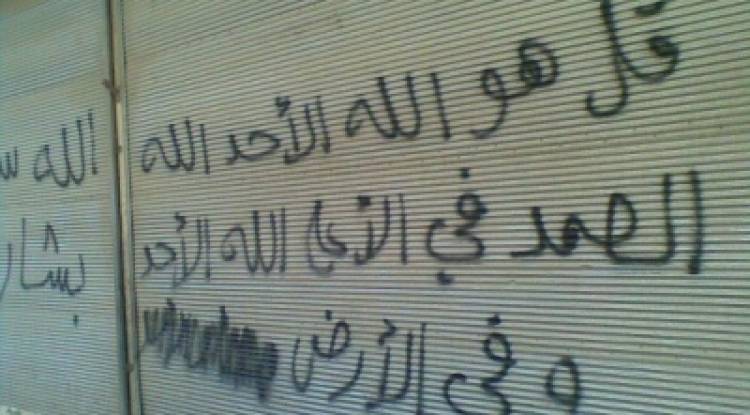 قل هو الله الأحد الله
الصمد في الله الأحد
و في الأرض
الله
بشار